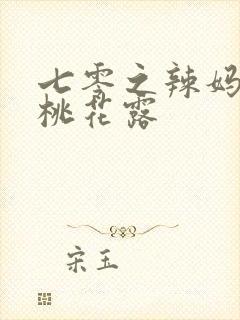 七零之辣妈
桃花露
宋玉